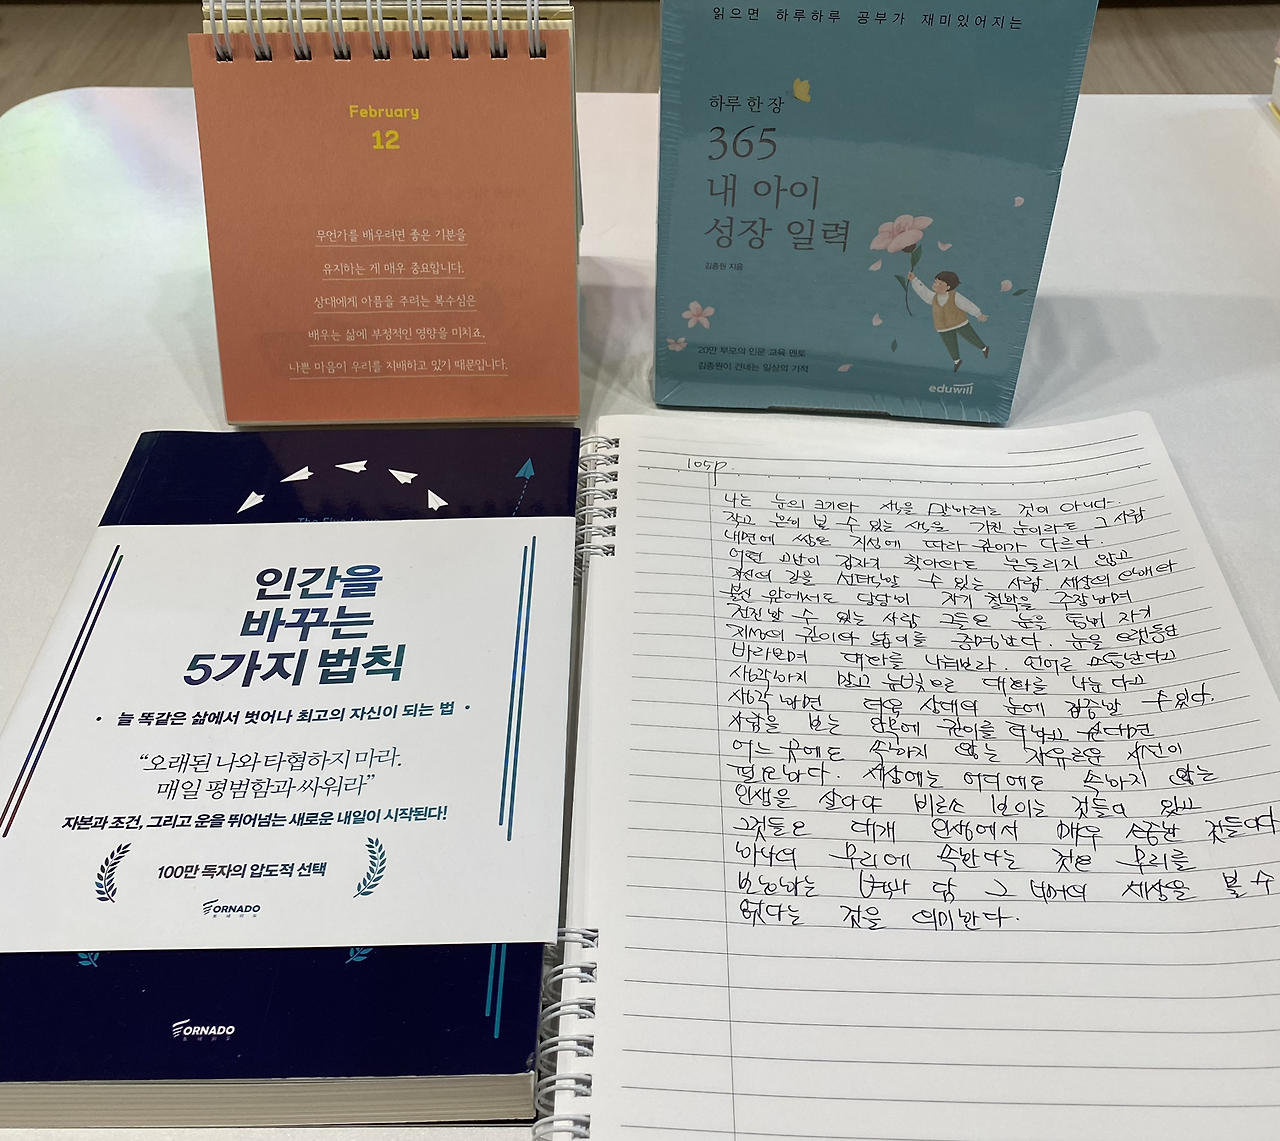 February
12
무언가를 배우려면 좋은 기분을
유지하는 게 매우 중요합니다.
상대에게 아픔을 주려는 복수심은
배우는 삶에 부정적인 영향을 미치죠.
나쁜 마음이 우리를 지배하고 있기 때문입니다.
읽으면 하루하루 공부가 재미있어지는
하루 한 장
365
내 아이
성장 일력
김종원 지음
20만 부모의 인문 교육 멘토
김종원이 건네는 일상의 기적
eduwill
인간을
바꾸는
5가지 법칙
• 늘 똑같은 삶에서 벗어나 최고의 자신이 되는 법 •
“오래된 나와 타협하지 마라.
매일 평범함과 싸워라”
자본과 조건, 그리고 운을 뛰어넘는 새로운 내일이 시작된다!
100만 독자의 압도적 선택
TORNADO
토네이도
TORNADO
토네이도
105p.
나는 눈의 크기와 색을 말하려는 것이 아니다.
작고 본이 볼 수 있는 색을 가진 눈이라도 그 사람
내면에 쌓은 지성에 따라 깊이가 다르다.
어떤 고난이 갑자기 찾아와도 흔들리지 않고
자신의 길을 선택할 수 있는 사람, 세상의 야배와
불신 앞에서도 당당히 자기 철학을 주장하며
전진할 수 있는 사람 그들은 눈을 통해 자기
지성의 깊이와 넓이를 증명한다. 눈을 오랫동안
바라보며 대화를 나눠보라. 언어로 소통한다고
생각하지 말고 눈빛으로 대화를 나눈다고
생각하면 더욱 상대의 눈에 집중할 수 있다.
사람을 보는 안목에 깊이를 더하고 싶다면
어느 곳에도 속하지 않는 자유로운 시선이
필요하다. 세상에는 어디에도 속하지 않는
인생을 살아야 비로소 보이는 것들이 있고
그것들은 대개 인생에서 매우 소중한 것들이다
하나의 무리에 속한다는 것은 무리를
보호하는 벽과 담 그 너머의 세상을 볼 수
없다는 것을 의미한다.